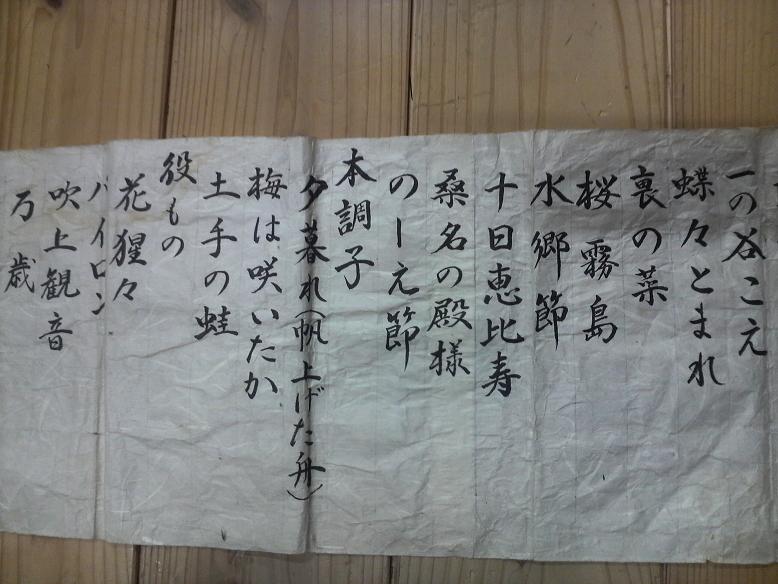 一の谷こえ
蝶々とまれ
裏の菜
桜霧島
水郷節
十日恵比寿
桑名の殿様
のーえ節
本調子
夕暮れ(帆上げた舟)
梅は咲いたか
土手の蛙
役もの
花猩々
バイロン
吹上観音
万歳